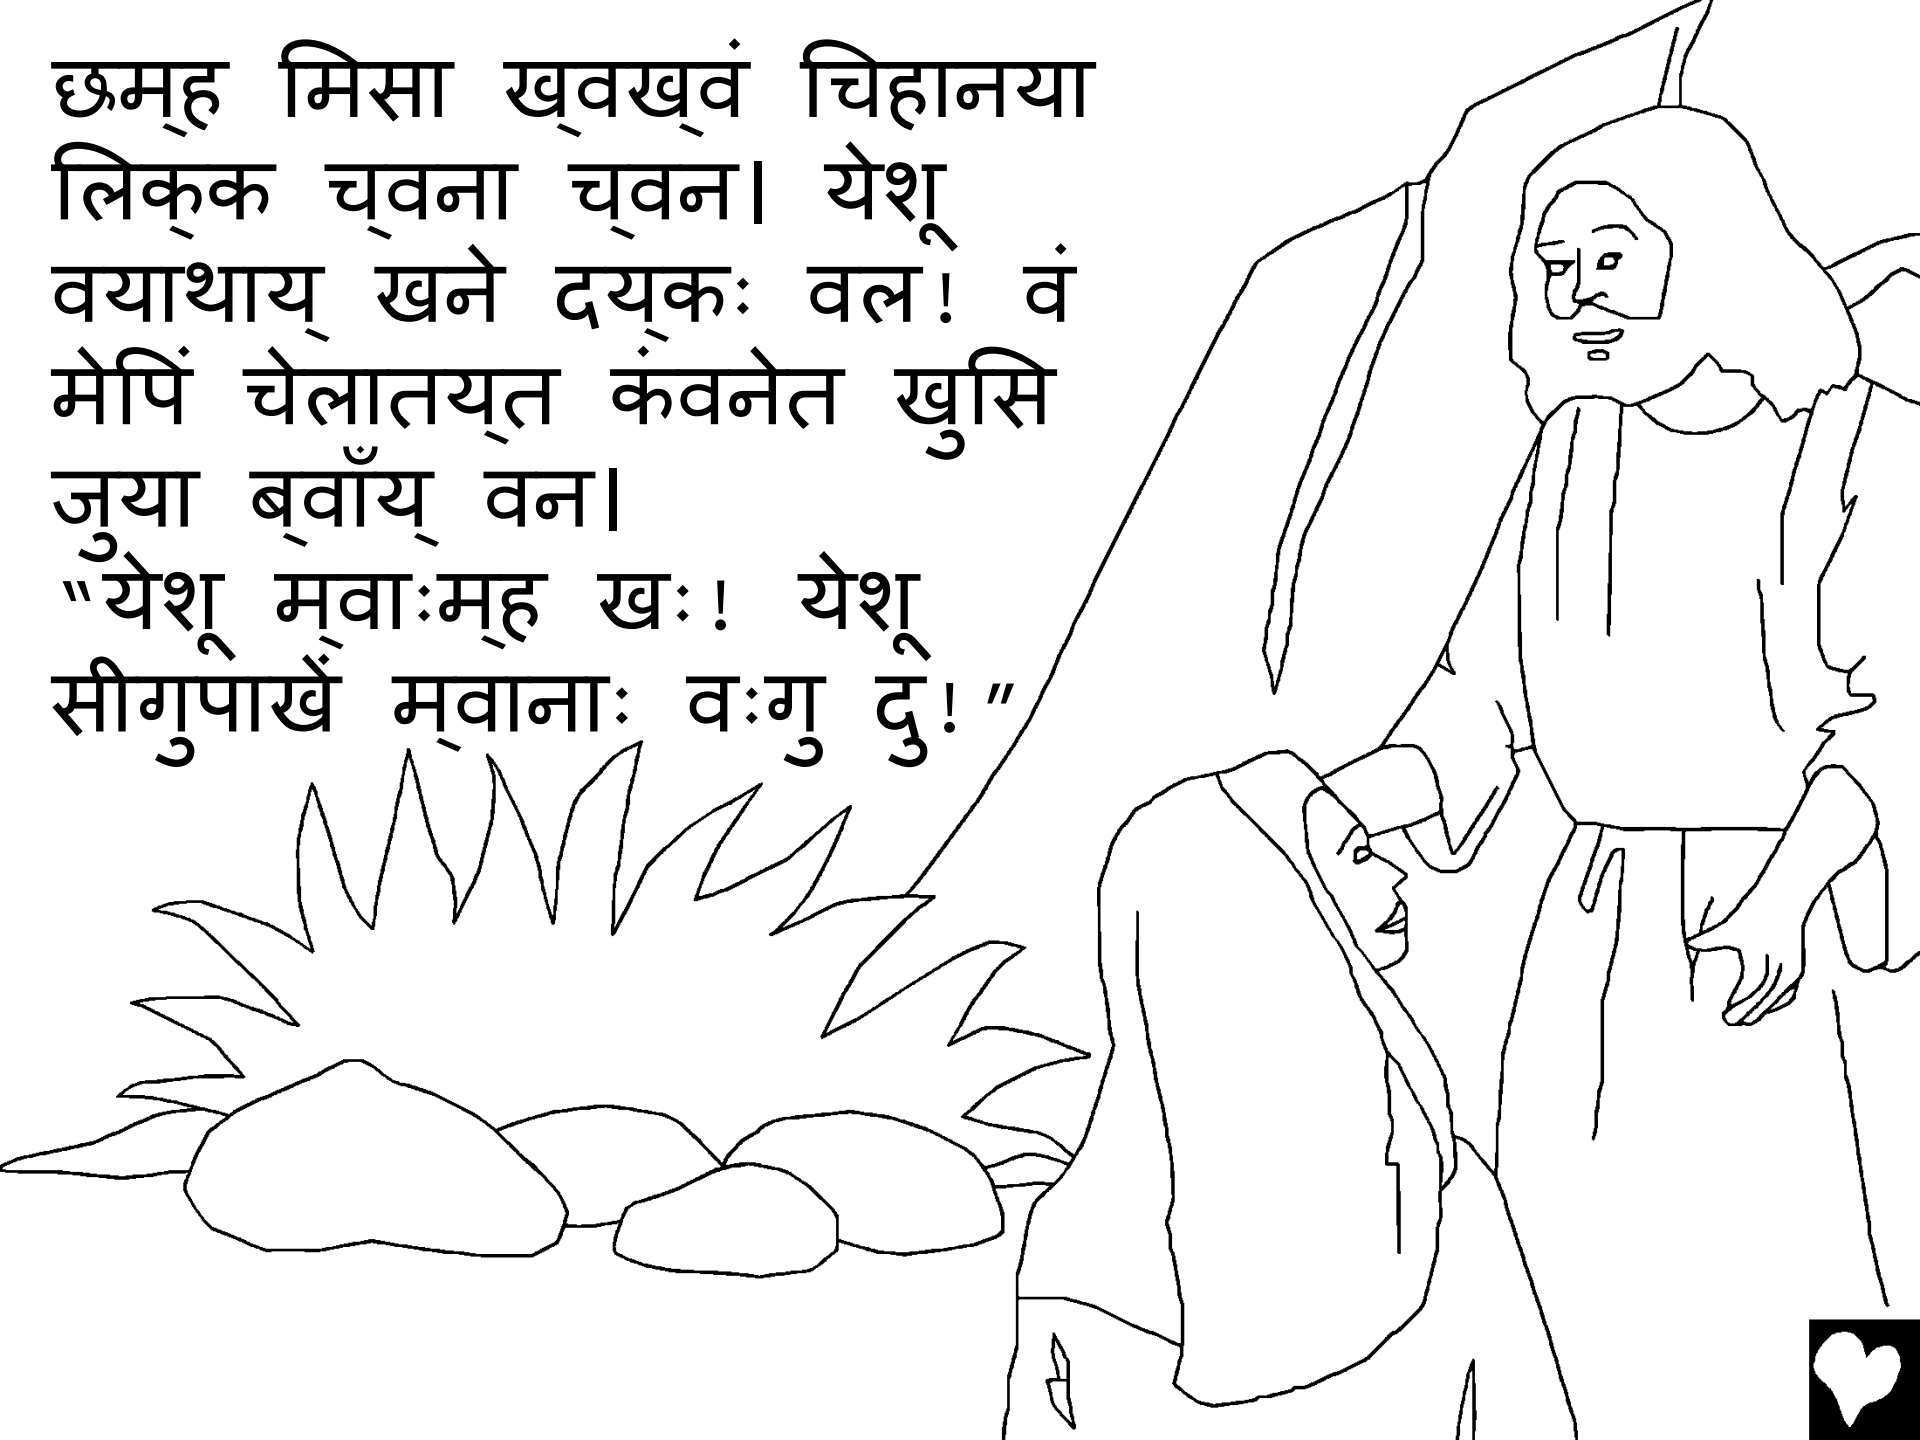 छम्ह मिसा ख्वख्वं चिहानया
लिक्क च्वना च्वन। येशू
वयाथाय् खने दय्कः वल! वं
मेपिं चेलातय्त कंवनेत खुसि
जुया ब्वाँय् वन।
“येशू म्वाःम्ह खः! येशू
सीगुपाखें म्वानाः वःगु दु!”